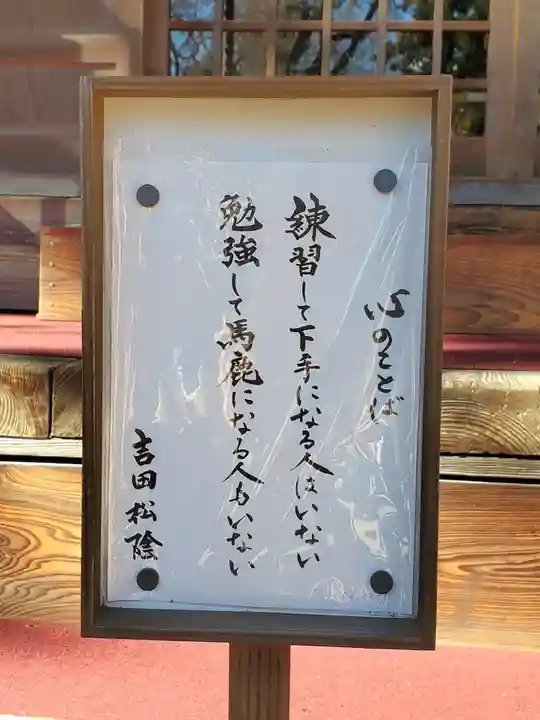 心のことば
練習して下手になる人はいない
勉強して馬鹿になる人もいない
吉田松陰